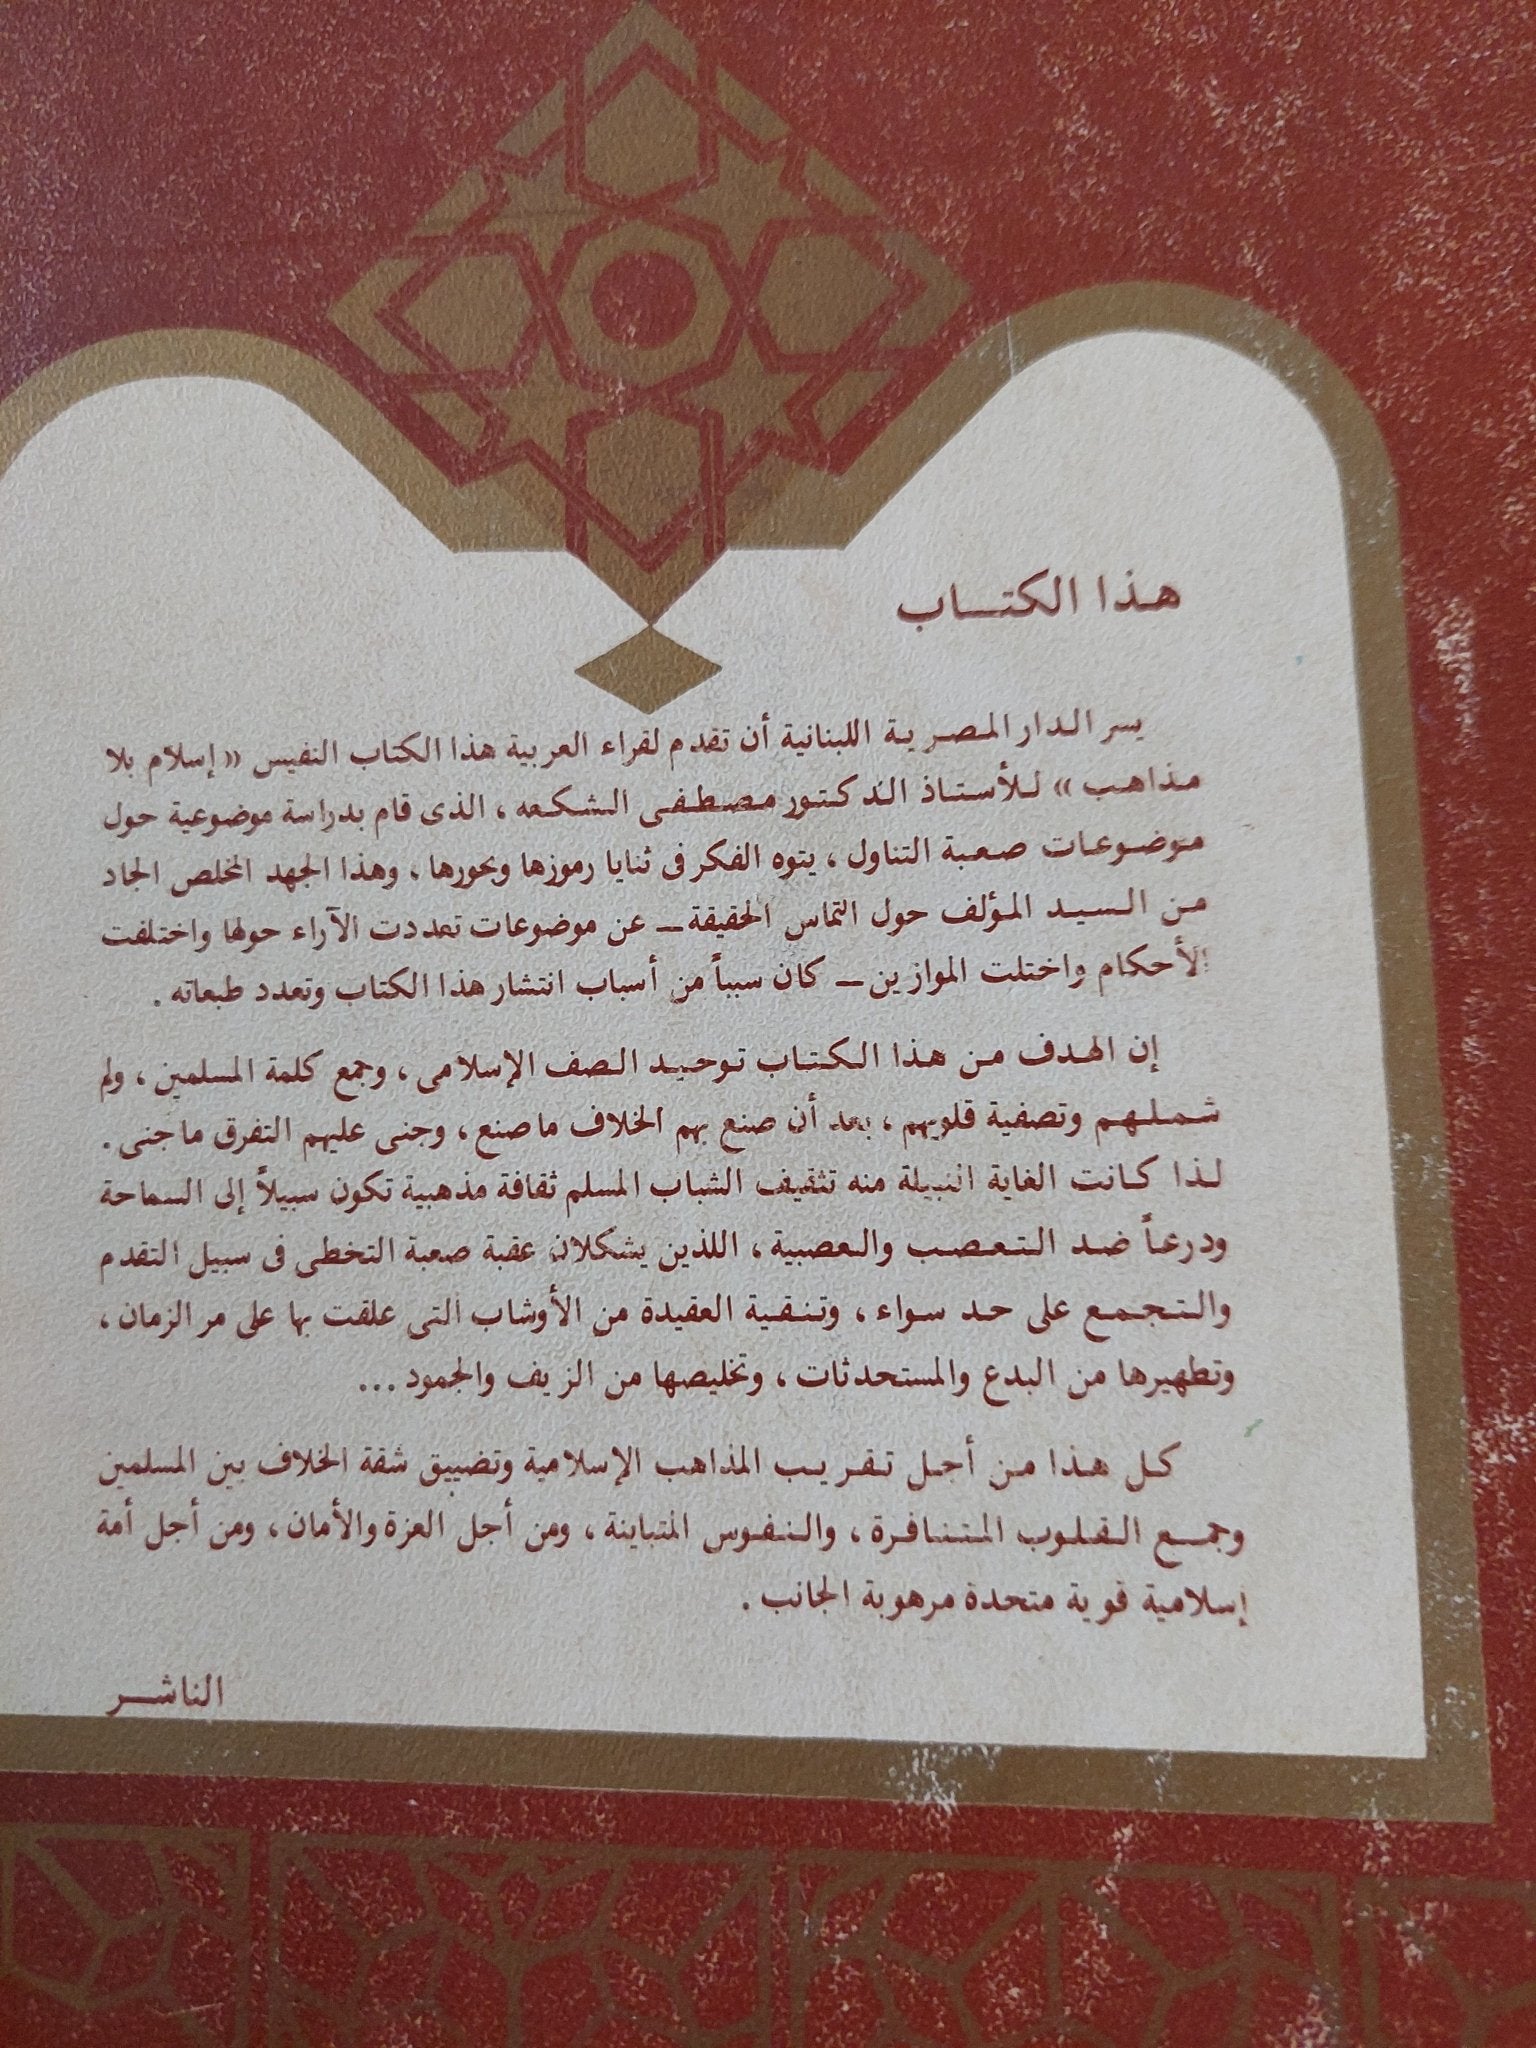 هذا الكتاب
يسر الدار المصرية اللبنانية أن تقدم لقراء العربية هذا الكتاب النفيس « إسلام بلا
مذاهب » للأستاذ الدكتور مصطفى الشكعه ، الذى قام بدراسة موضوعية حول
موضوعات صعبة التناول ، يتوه الفكر فى ثنايا رموزها وبحورها . وهذا الجهد المخلص الجاد
من السيد المؤلف حول التماس الحقيقة ــ عن موضوعات تعددت الآراء حولها واختلفت
الأحكام واختلت الموازين ــ كان سبباً من أسباب انتشار هذا الكتاب وتعدد طبعاته .
إن الهدف من هذا الكتاب توحيد الصف الإسلامى ، وجمع كلمة المسلمين ، ولم
شملهم وتصفية قلوبهم ، بعد أن صنع بهم الخلاف ما صنع ، وجنى عليهم التفرق ما جنى .
لذا كانت الغاية النبيلة منه تثقيف الشباب المسلم ثقافة مذهبية تكون سبيلاً إلى السماحة
ودرعاً ضد التعصب والعصبية ، اللذين يشكلان عقبة صعبة التخطى فى سبيل التقدم
والتجمع على حد سواء ، وتنقية العقيدة من الأوشاب التى علقت بها على مر الزمان ،
وتطهيرها من البدع والمستحدثات ، وتخليصها من الزيف والجمود ...
كل هذا من أجل تقريب المذاهب الإسلامية وتضييق شقة الخلاف بين المسلمين
وجمع القلوب المتنافرة ، والنفوس المتباينة ، ومن أجل العزة والأمان ، ومن أجل أمة
إسلامية قوية متحدة مرهوبة الجانب .
الناشر